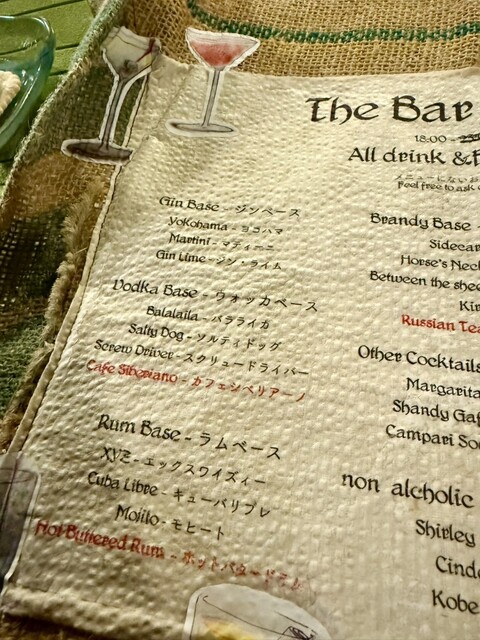 The Bar
18:00 -
All drink &
メニューにないお
Feel free to ask
Gin Base - ジンベース
Yokohama - ヨコハマ
Martini - マティーニ
Gin Lime - ジン・ライム
Vodka Base - ウォッカベース
Balalaila - バラライカ
Salty Dog - ソルティドッグ
Screw Driver - スクリュードライバー
Cafe Siberiano - カフェシベリアーノ
Rum Base - ラムベース
XYZ - エックスワイズィー
Cuba Libre - キューバリブレ
Mojito - モヒート
Hot Buttered Rum - ホットバタードラム
Brandy Base -
Sidecar
Horse's Neck
Between the shee
Kir
Russian Tea
Other Cocktails
Margarita
Shandy Gaf
Campari So
non alcholic
Shirley
Cinde
Kobe